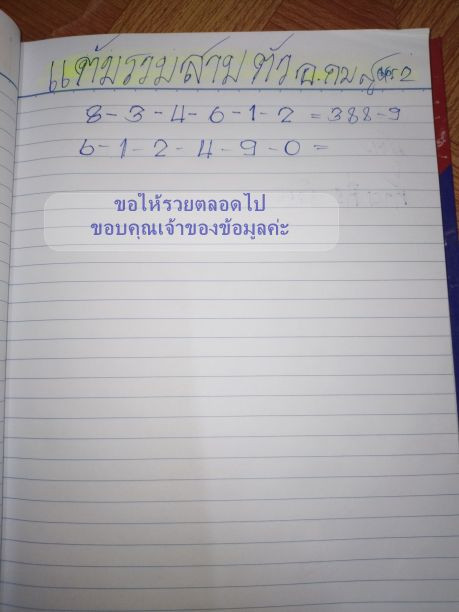 แต้มรวมสามตัว อ.คม สูตร 2
8-3-4-6-1-2 = 388-9
6-1-2-4-9-0 =
ขอให้รวยตลอดไป
ขอบคุณเจ้าของข้อมูลค่ะ